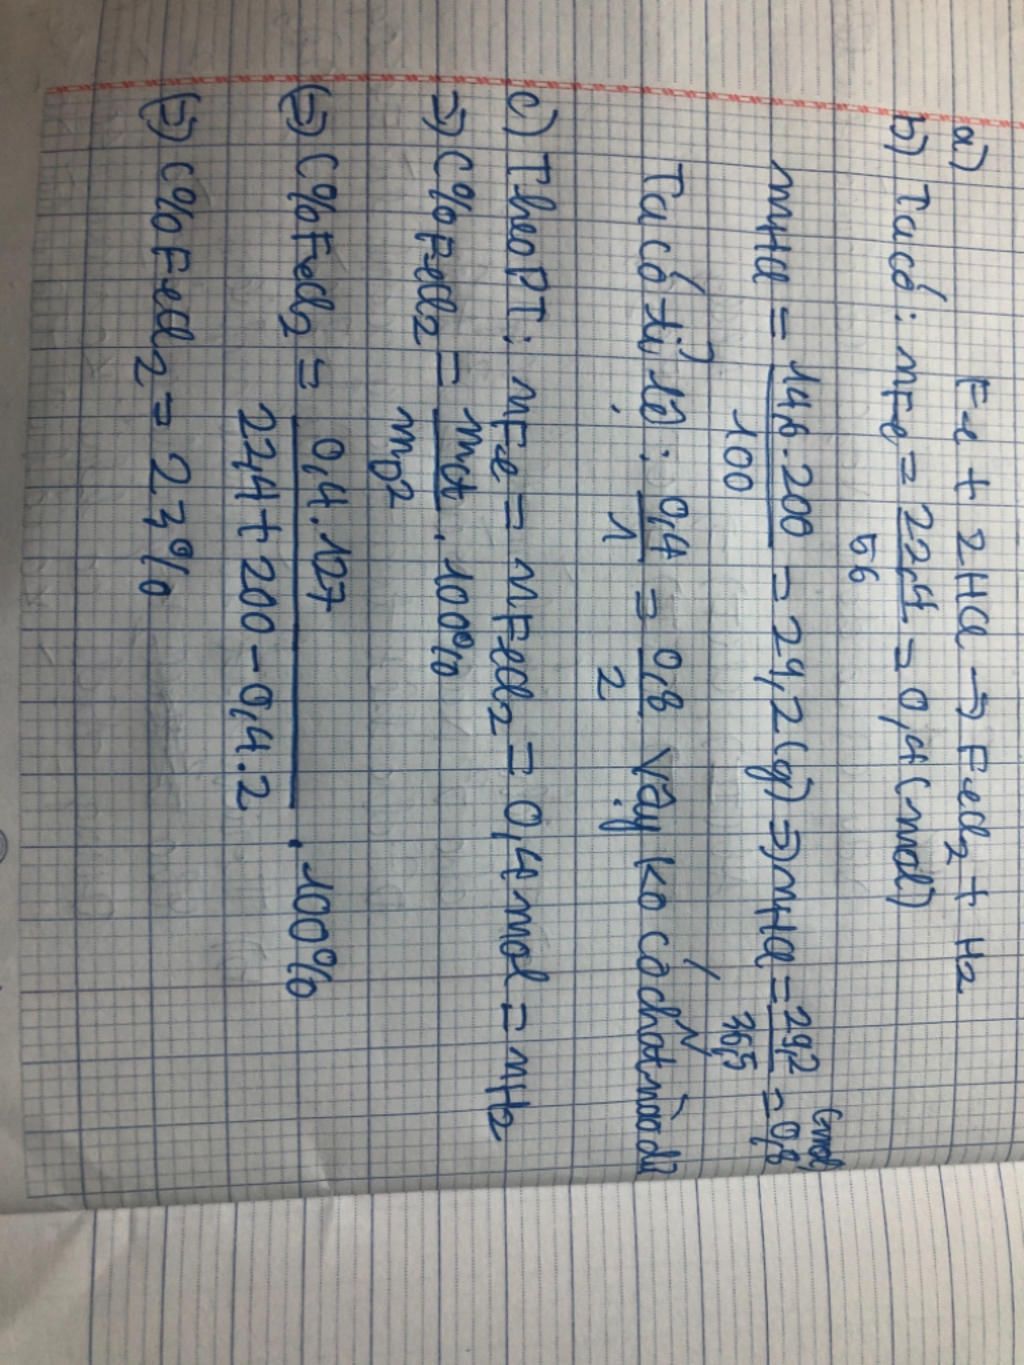 a) Fe + 2HCl → FeCl2 + H2
b) Ta có: nFe = 22,4/56 = 0,4 (mol)
mHCl = 14,6.200/100 = 29,2 (g) => nHCl = 29,2/36,5 = 0,8 (mol)
Ta có tỉ lệ: 0,4/1 = 0,8/2 vậy ko có chất nào dư
c) Theo PT: nFe = nFeCl2 = 0,4 mol = nH2
=> C%FeCl2 = mct/mdd . 100%
(=) C%FeCl2 = 0,4.127/22,4+200-0,4.2 . 100%
(=) C%FeCl2 = 23%